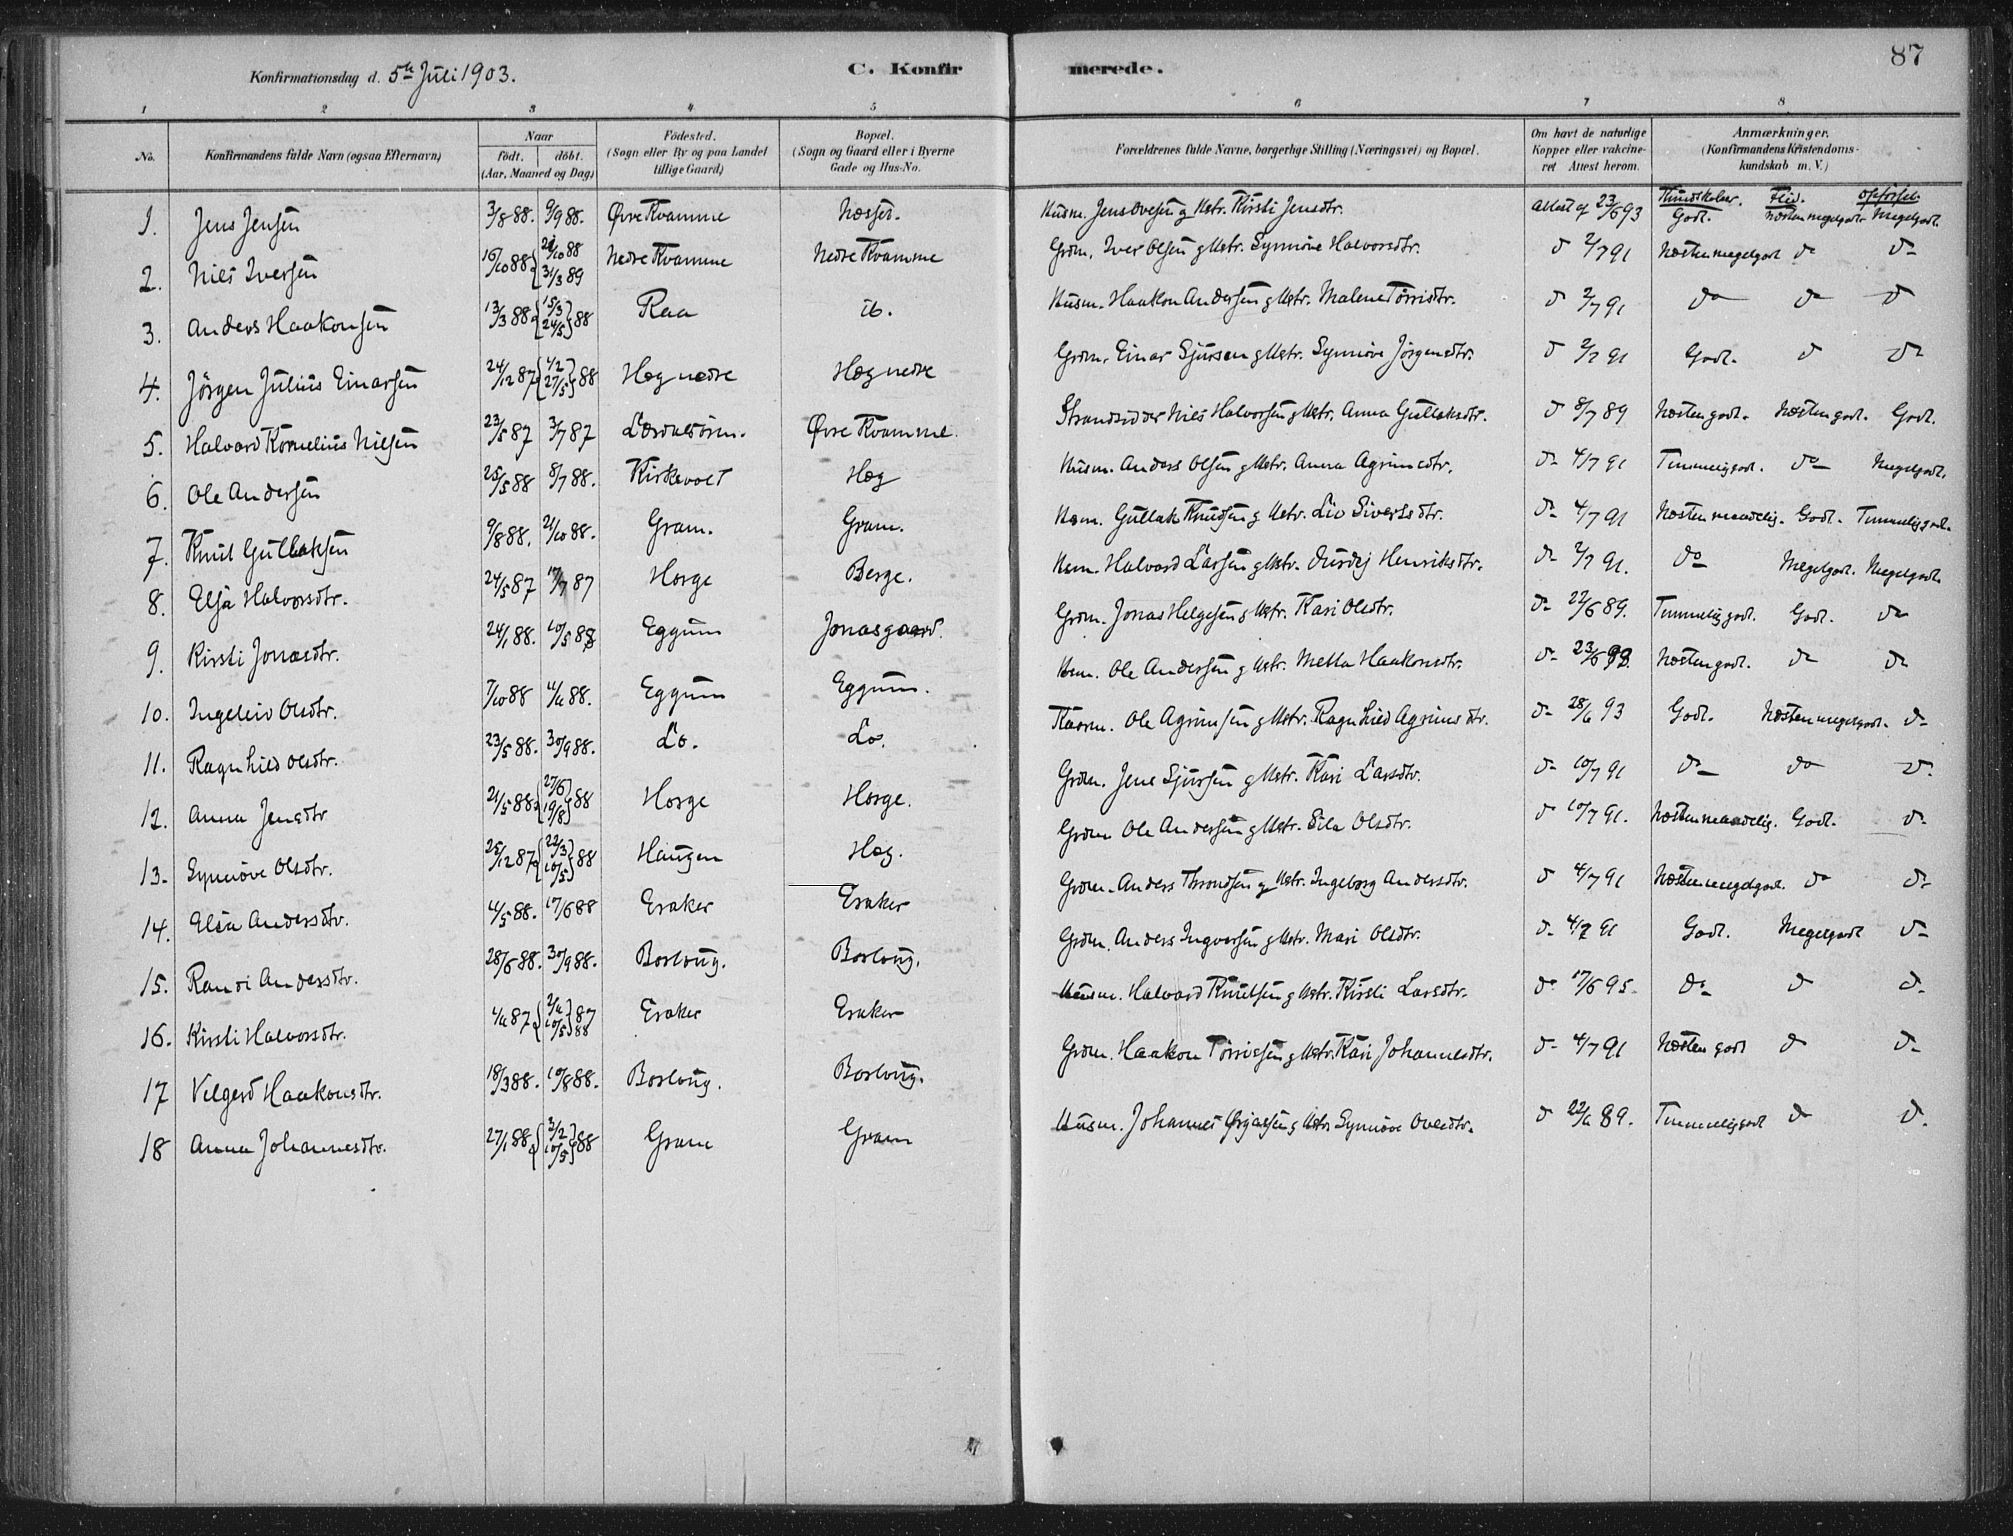 87
Konfirmationsdag d. 5te Juli 1903.
C. Konfirmerede.
1 2 3 4 5 6 7 8
No. Konfirmandens fulde Navn (ogsaa Efternavn) Naar födt. döbt. (Aar, Maaned og Dag) Födested. (Sogn eller By og paa Landet tillige Gaard) Bopæl. (Sogn og Gaard eller i Byerne Gade og Hus-No. Forældrenes fulde Navne, borgerlige Stilling (Næringsvei) og Bopæl. Om havt de naturlige Kopper eller vakcineret Attest herom. Anmærkninger. (Konfirmandens Kristendomskundskab m. V.)
Kundskaber. Flid. Opførsel.
1. Jens Jensen 3/8 88. 9/9 88. Øvre Kvamme Næsset. Husm. Jens Ovesen g Kstr. Kirsti Jensdtr. attest af 23/6 93 Godt. Næsten megetgodt. Megetgodt.
2. Nils Iversen 16/10 88 /10 88 31/3 89 Nedre Kvamme Nedre Kvamme Grdm. Iver Olsen g Kstr. Synnöve Halvorsdtr. do 2/7 91 Næsten megetgodt do do
3. Anders Haakonsen 13/3 88 15/3 24/5 88 Raa ib. Husm. Haakon Andersen g Kstr. Malene Törrisdtr. do 2/7 91 do do do
4. Jörgen Julius Einarsen 24/12 87 1/2 27/5 88 Hæg nedre Hæg nedre Grdm. Einar Sjursen g Kstr. Synnöve Jörgensdtr. do 2/7 91 Godt. do do
5. Halvard Kornelius Nilsen 23/5 87 3/7 87 Lærdalsören. Øvre Kvamme. Strandsidder Nils Halvorsen g Kstr. Anna Gullaksdtr. do 8/7 89 Næsten godt. Næsten godt. Godt.
6. Ole Andersen 25/5 88 8/7 88. Kirkevold Hæg Husm. Anders Olsen g Kstr. Anna Agrimsdtr. do 4/7 91 Temmelig godt. do Megetgodt.
7. Knut Gullaksen 9/8 88. 21/10 88. Gram. Gram. Hsm. Gullak Knudsen g Kstr. Liv Sivertsdtr. do 4/7 91 Næsten maadelig. Godt. Temmelig godt.
8. Elsa Halvorsdtr. 24/5 87 17/7 87 Horge Berge. Hsm. Halvard Larsen g Kstr. Durdej Henriksdtr. do 2/7 91. do Megetgodt. Megetgodt.
9. Kirsti Jonasdtr. 24/1 88. 10/5 88 Eggum Jonasgaard. Grdm. Jonas Helgesen g Kstr. Kari Olsdtr. do 22/6 89. Temmelig godt. Godt. do
10. Ingeleiv Olsdtr. 7/10 88 4/11 88. Eggum Eggum. Hsm. Ole Andersen g Kstr. Metta Haakonsdtr. do 23/6 93. Næsten godt. do do
11. Ragnhild Olsdtr. 23/5 88. 30/9 88. Lo. Lo. Kaarm. Ole Agrimsen g Kstr. Ragnhild Agrimsdtr. do 28/6 93 Godt. Næsten megetgodt. do
12. Anna Jensdtr 21/5 88. 27/6 19/8 88 Horge Horge. Grdm. Jens Sjursen g Kstr. Kari Larsdtr. do 10/7 91 do do do
13. Synnöve Olsdtr. 25/12 87 22/3 10/5 88 Haugen Hæg. Grdm Ole Andersen g Kstr. Sila Olsdtr. do 10/7 91. Næsten maadelig. Godt. do
14. Elsa Andersdtr. 11/5 88. 17/6 88 Eraker Eraker Grdm. Anders Throndsen g Kstr. Ingeborg Andersdtr. do 4/7 91 Næsten megetgodt. do do
15. Randi Andersdtr. 28/6 88. 30/9 88. Borlaug. Borlaug. Grdm. Anders Ingvorsen g Kstr. Mari Olsdtr. do 4/7 91 Godt. Megetgodt do
16. Kirsti Halvorsdtr. 1/11 87 2/11 87 10/5 88 Eraker Eraker Husm. Halvard Knutsen g Kstr. Kirsti Larsdtr. do 17/6 95. do do do
17 Vilgerd Haakonsdtr. 18/3 88. 10/8 88. Borlaug. Borlaug. Grdm. Haakon Törrissen g Kstr. Kari Johannesdtr. do 4/7 91 Næsten godt do do
18 Anna Johannesdtr. 27/1 88. 3/2 10/5 88 Gram Gram Husm. Johannes g Kstr. Synnöve Olsdtr. do 22/6 89. Temmelig godt do do